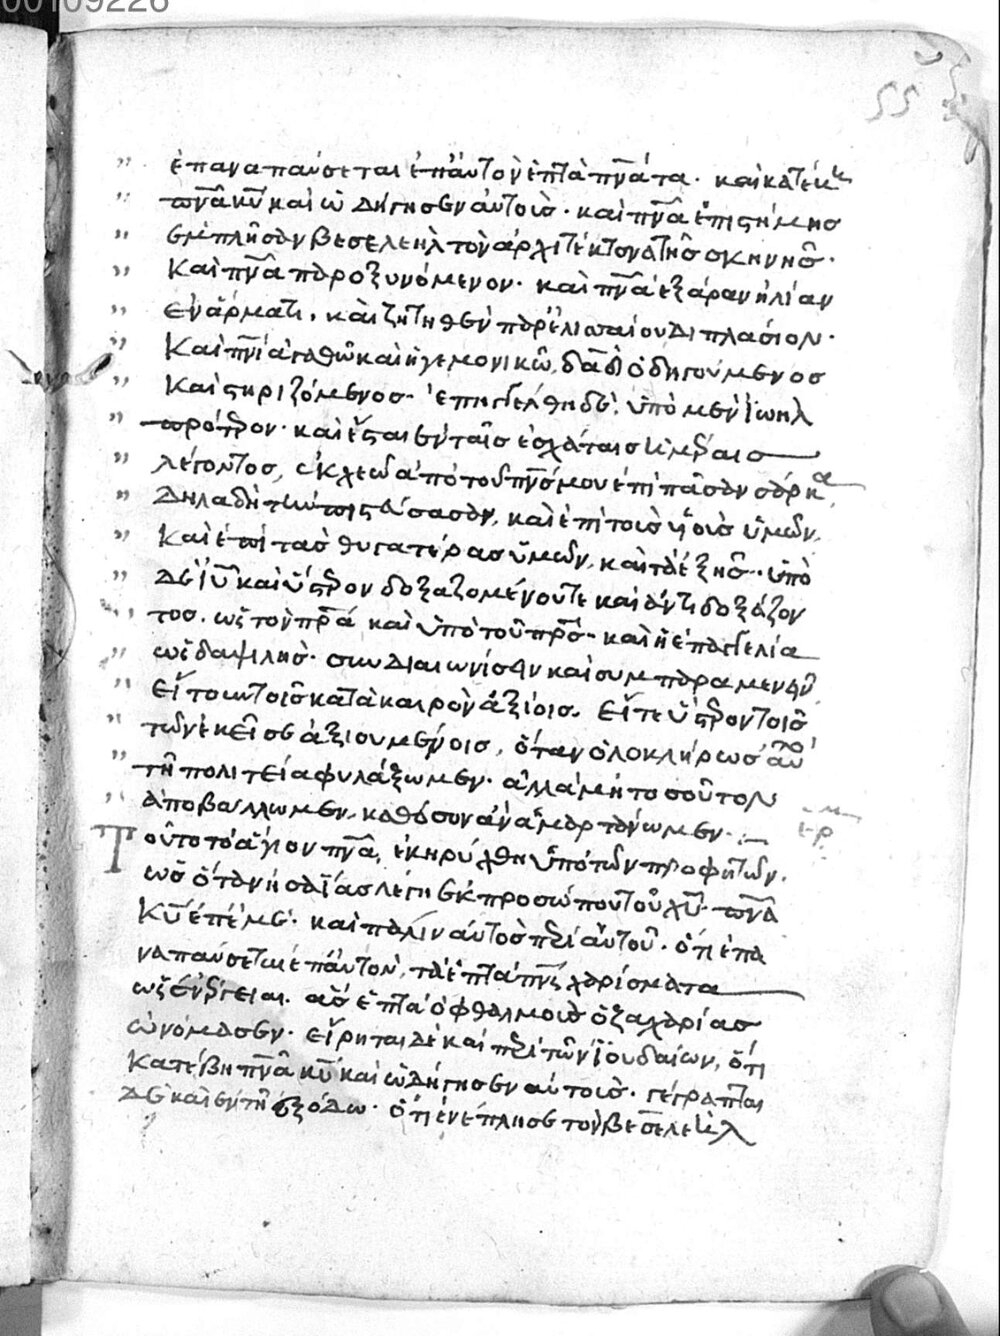 00109226
55
ἐπαναπαύσεται ἐπ' αὐτὸν ἑπτὰ πν̅α̅τα. καὶ κατέβη
πν̅α̅ κ̅υ̅ καὶ ὡδήγησεν αὐτούς. καὶ πν̅α̅ ἐπιστήμης
ἐμπλῆσαν βεσελεὴλ τὸν ἀρχιτέκτονα τῆς σκηνῆς.
καὶ πν̅α̅ παροξυνόμενον. καὶ πν̅α̅ ἐξάραν ἠλίαν
ἐν ἅρματι, καὶ ζητηθὲν παρ' ἐλισσαίου διπλάσιον.
καὶ πν̅ι̅ ἀγαθῷ καὶ ἡγεμονικῷ δα̅δ̅ ὁδηγούμενος
καὶ στηριζόμενος. ἐπηγγέλθη δὲ, ὑπὸ μὲν ἰωὴλ
πρότερον. καὶ ἔσται ἐν ταῖς ἐσχάταις ἡμέραις
λέγοντος, ἐκχεῶ ἀπὸ τοῦ πν̅ς̅ μου ἐπὶ πᾶσαν σάρκα
δηλαδὴ τὴν πιστεύσασαν, καὶ ἐπὶ τοὺς υἱοὺς ὑμῶν,
καὶ ἐπὶ τὰς θυγατέρας ὑμῶν, καὶ τὰ ἑξῆς. ὑπὸ
δὲ ι̅υ̅ καὶ ὕστερον δοξαζομένου τε καὶ ἀντιδοξάζον
τος. ὡς τὸν πρ̅α̅ καὶ ὑπὸ τοῦ πρ̅ς̅. καὶ ἡ ἐπαγγελία
ὡς δαψιλής. συνδιαιωνίσειν καὶ συμπαραμενεῖν
εἴτ' οὖν τοῖς κατὰ καιρὸν ἀξίοις. εἴτε ὕστερον τοῖς
τῶν ἐκεῖσε ἀξιουμένοις, ὅταν ὁλοκλήρως αὐτὸ
τῇ πολιτείᾳ φυλάξωμεν. ἀλλὰ μὴ τοσοῦτον
ἀποβάλλωμεν, καθόσον ἂν ἁμαρτάνωμεν.
Τοῦτο τὸ ἅγιον πν̅α̅, ἐκηρύχθη ὑπὸ τῶν προφητῶν.
ὡς ὅταν ἡσαΐας λέγῃ ἐκ προσώπου τοῦ χ̅υ̅. πν̅α̅
κ̅υ̅ ἐπ' ἐμέ. καὶ πάλιν αὐτὸς περὶ αὐτοῦ. ὅτι ἐπα
ναπαύσεται ἐπ' αὐτὸν, τὰ ἑπτὰ πν̅ς̅ χαρίσματα
ὡς ἐνέργειαι. ἃς ἑπτὰ ὀφθαλμοὺς ὁ ζαχαρίας
ὠνόμασεν. εἴρηται δὲ καὶ περὶ τῶν ἰουδαίων, ὅτι
κατέβη πν̅α̅ κ̅υ̅ καὶ ὡδήγησεν αὐτούς. γέγραπται
δὲ καὶ ἐν τῇ ἐξόδῳ. ὅτι ἐνέπλησε τὸν βεσελεὴλ